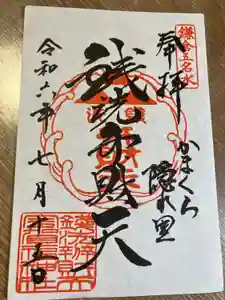 鎌倉五名水
奉拝
かまくら
隠れ里
銭洗弁財天
令和六年七月十五日